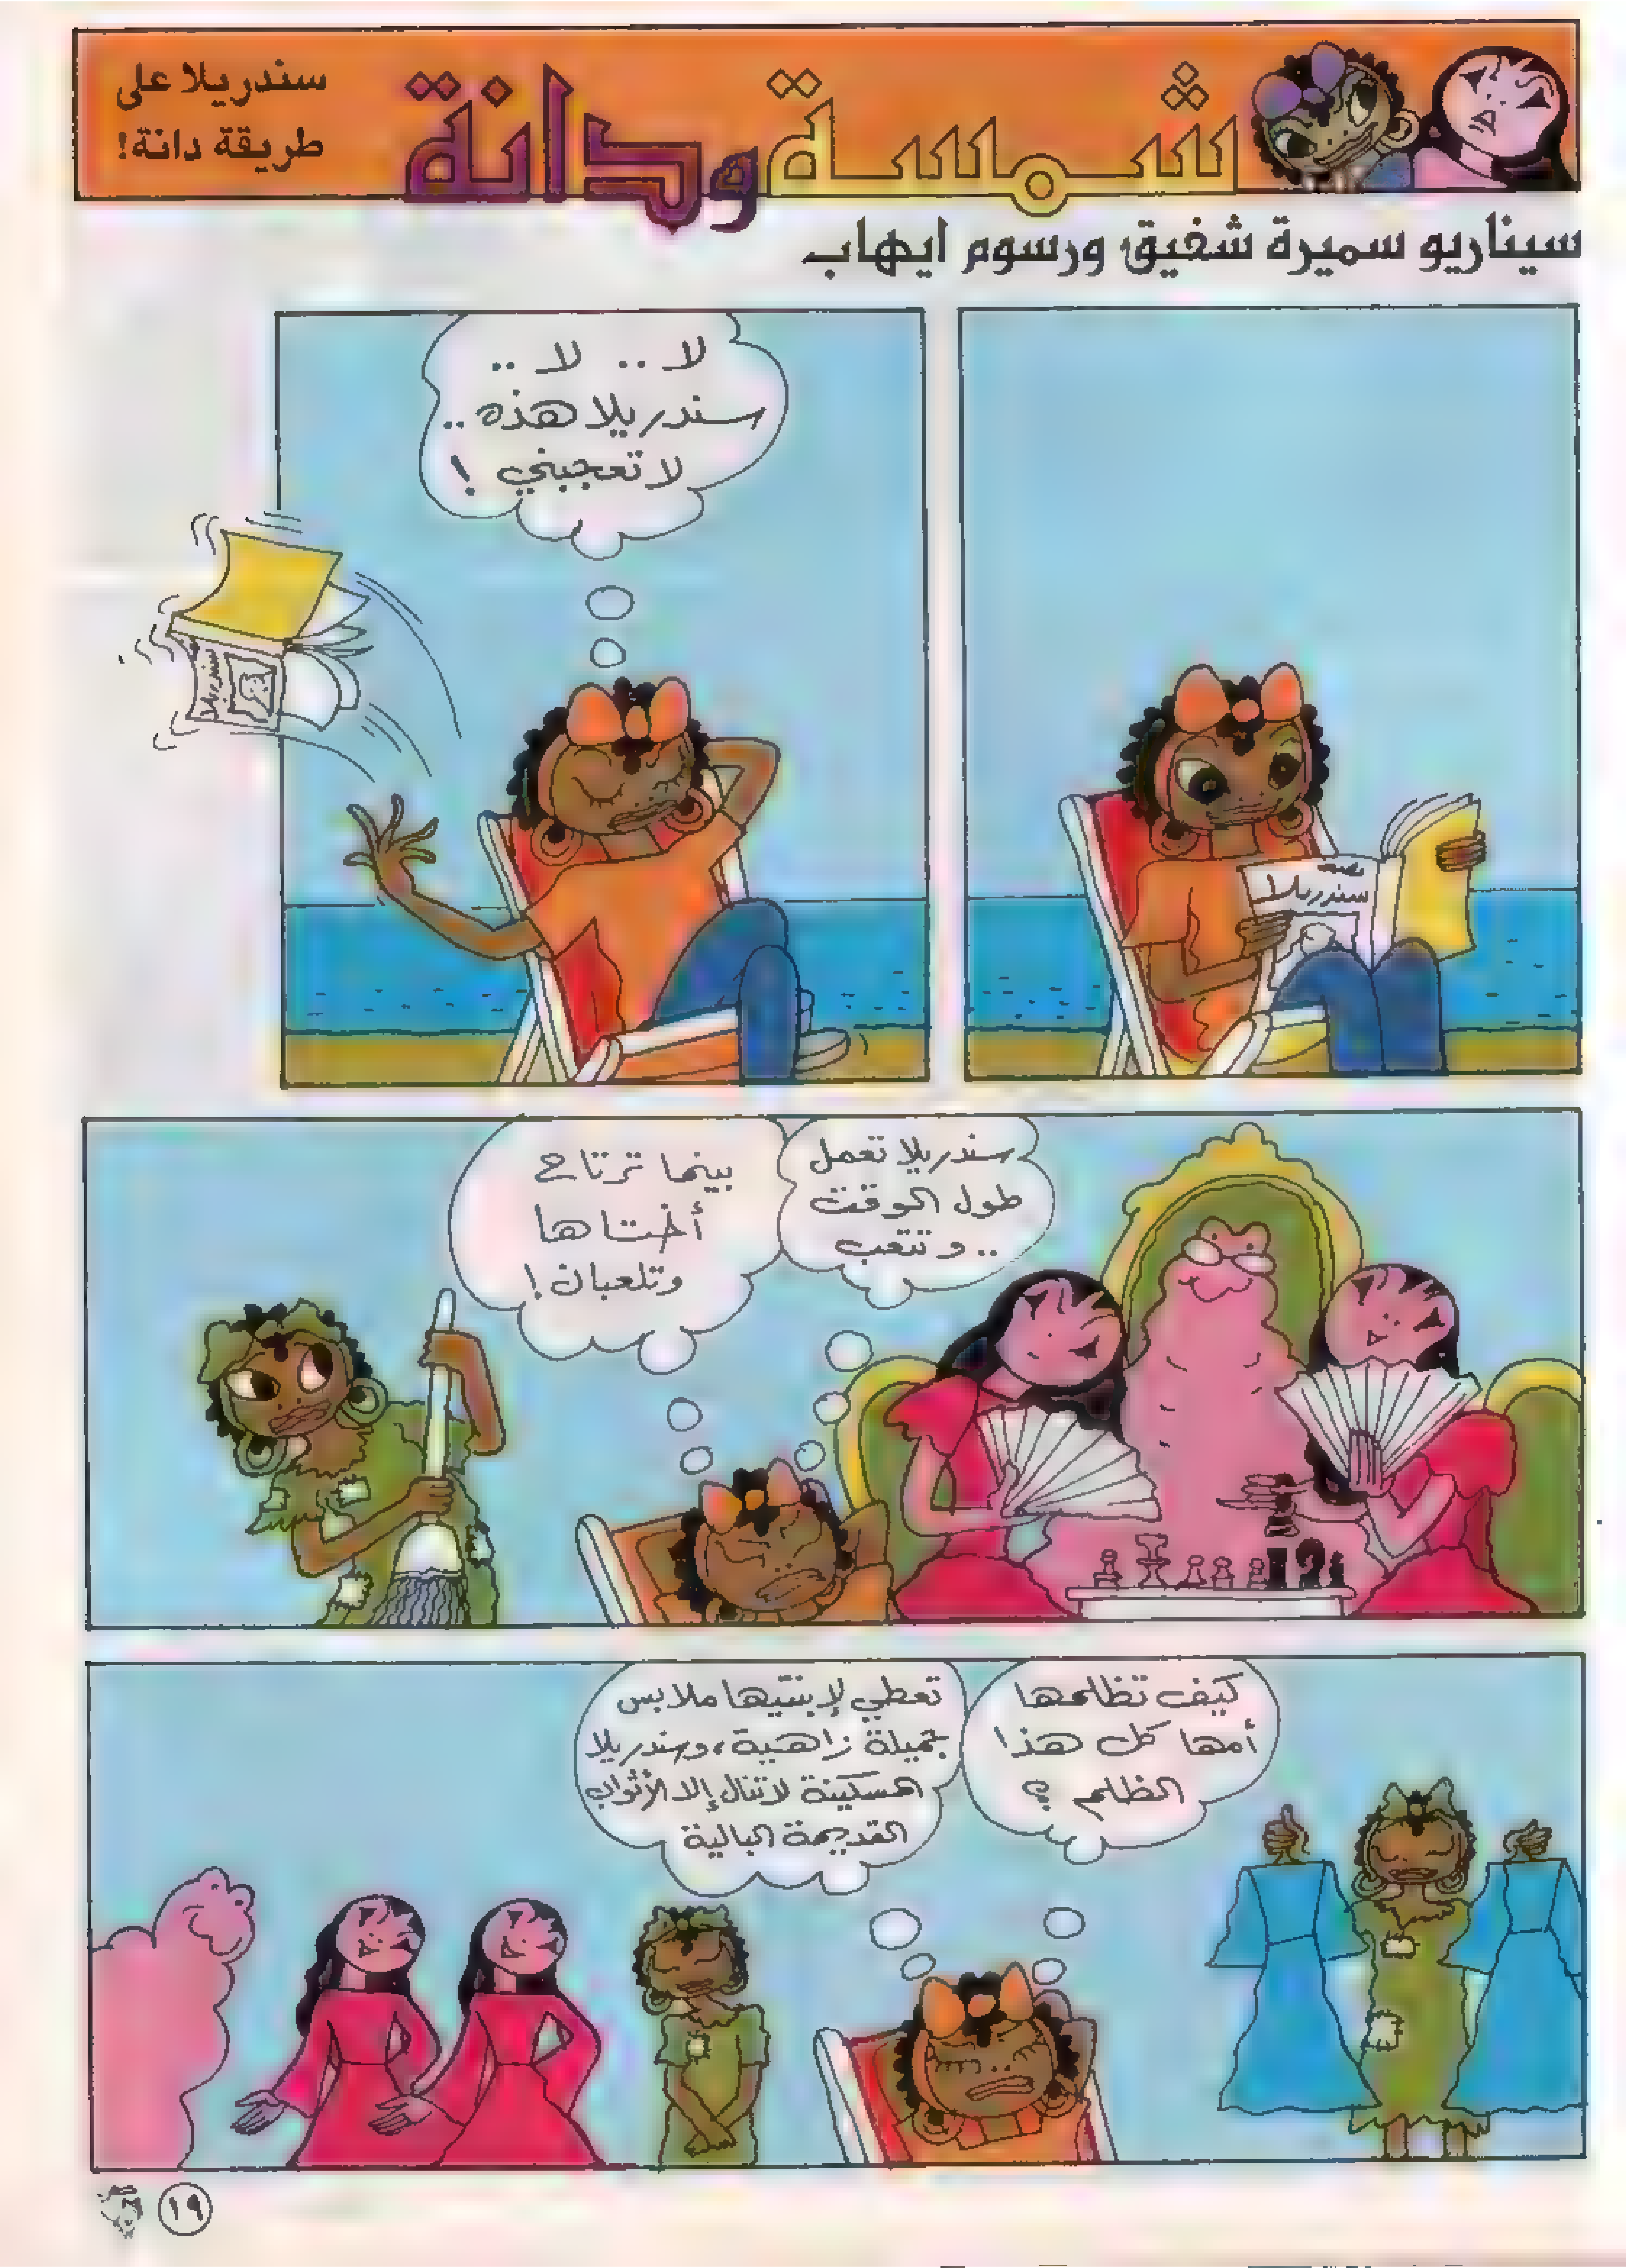 سندريلا على
طريقة دانة!
شمسة ودانة
سيناريو سميرة شفيق ورسوم ايهاب
قصة
سندريلا
لا .. لا ..
سندريلا هذه ..
لا تعجبني !
سندريلا
سندريلا تعمل
طول الوقت
.. و تتعب
بينما ترتاح
أختاها
وتلعبان !
كيف تظلمها
أمها كل هذا
الظلم ؟
تعطي لإبنتيها ملابس
جميلة زاهية ، وسندريلا
المسكينة لا تنال إلا الأثواب
القديمة البالية
١٩